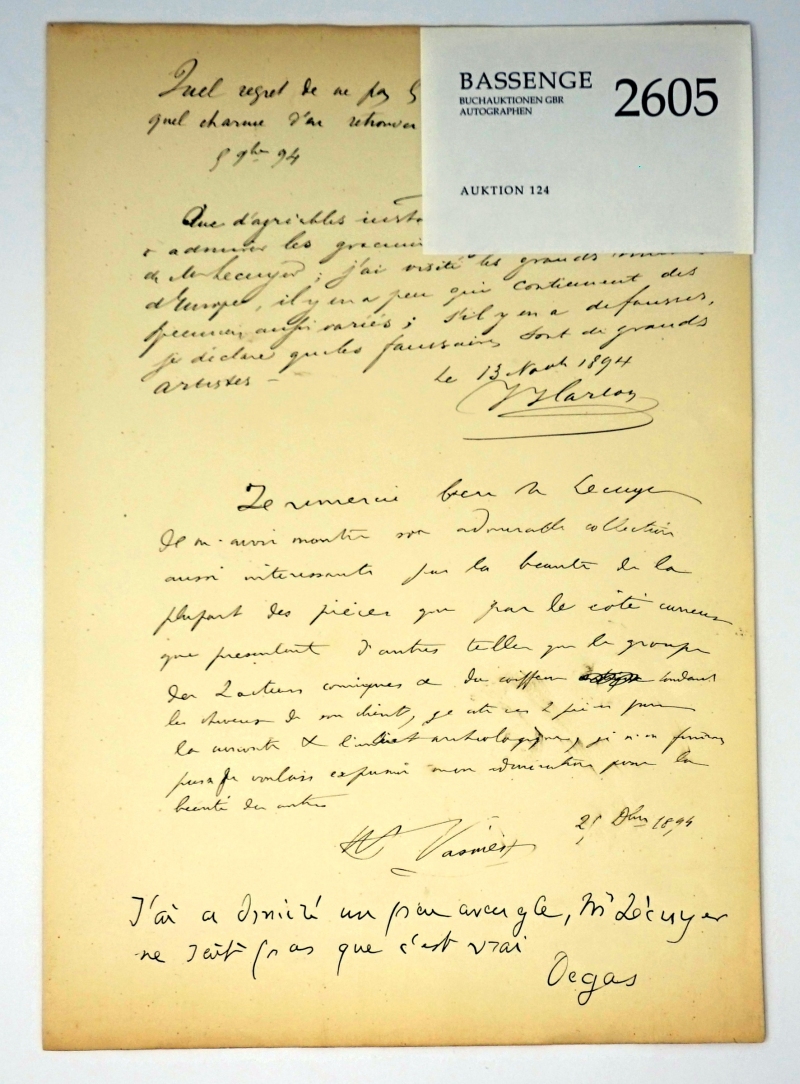 Quel regret de ne pas
quel charme d'en retrouver
5 9bre 94
BASSENGE
BUCHAUKTIONEN GBR
AUTOGRAPHEN
2605
AUKTION 124
Que d'agréables insta
& admirer les gracieu
de Mr Lecuyer ; j'ai visité les grands
d'Europe, il y en a peu qui contiennent des
specimens aussi variés ; s'il y en a de fausses,
je déclare que les faussaires sont de grands
artistes —
Le 13 Novb 1894
Je remercie bien Mr Lecuyer
de m'avoir montré son admirable collection
aussi interessante par la beauté de la
plupart des pièces que par le côté curieux
que présentent d'autres telles que le groupe
des 2 acteurs comiques & du coiffeur tondant
les cheveux de son client, je cite ces 2 pièces pour
la curiosité & l'intérêt archéologique, je n'en finirais
pas si je voulais exprimer mon admiration pour la
beauté des autres
25 Dbre 1894
Vasnier
J'ai admiré un peu aveugle, Mr Lécuyer
ne sait pas que c'est vrai
Degas